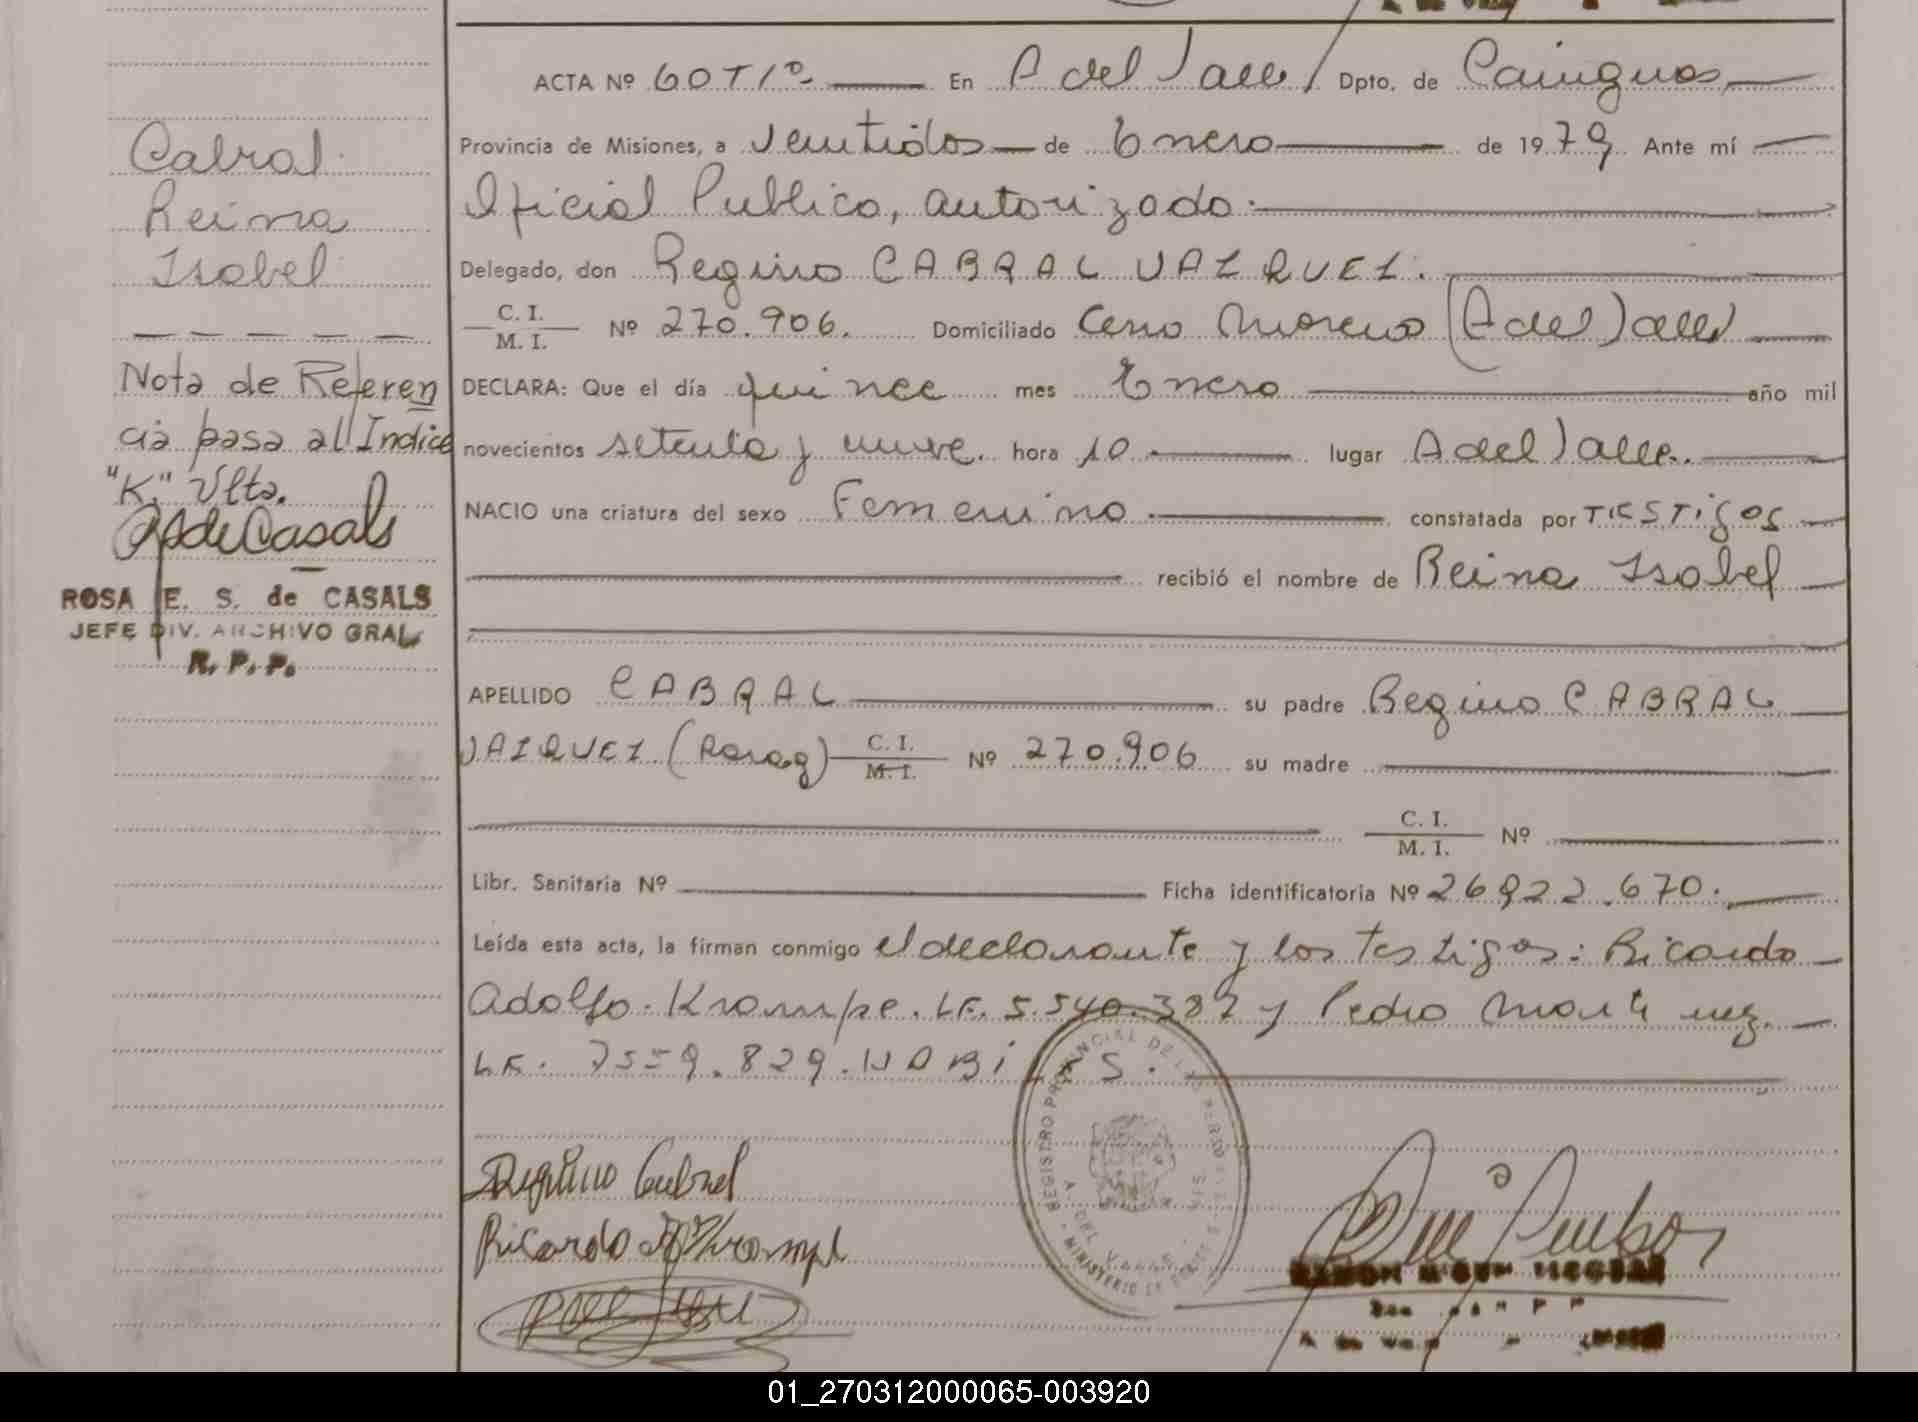 Cabral
Reina
Isabel
Nota de Referen
cia pasa al Indice
"K." Vlta.
ROSA E. S. de CASALS
JEFE DIV. ARCHIVO GRAL
R. P. P.
ACTA Nº 60 T/Iº En A del Valle Dpto. de Cainguas
Provincia de Misiones, a veintidos de Enero de 1979 Ante mí
Oficial Publico, autorizado.
Delegado, don Regino CABRAL VAZQUEZ.
C. I.
M. I. Nº 270.906. Domiciliado Cerro Moreno (A del Valle)
DECLARA: Que el día quince mes Enero año mil
novecientos setenta y nueve. hora 10 lugar A del Valle.
NACIO una criatura del sexo Femenino constatada por TESTigos
recibió el nombre de Reina Isabel
APELLIDO CABRAL su padre Regino CABRAL
VAZQUEZ (Parag) C. I.
M. I. Nº 270.906 su madre
C. I.
M. I. Nº
Libr. Sanitaria Nº Ficha identificatoria Nº 26922.670.
Leída esta acta, la firman conmigo el declarante y los testigos: Ricardo
Adolfo Krompe. LE. 5.540.387 y Pedro
LE. 829. HABiLES.
REGISTRO PROVINCIAL DE LAS PERSONAS
A. DEL VALLE MIS.
MINISTERIO DE
Regino Cabral
Ricardo
RAMON
01_270312000065-003920